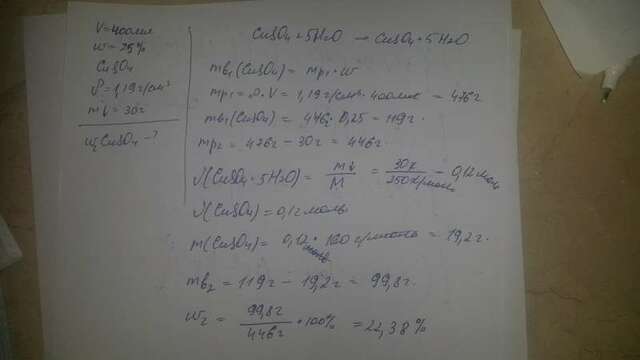 V=400мл
W=25%
CuSO4
ρ=1,19г/см³
m↓=30г
W2CuSO4-?
CuSO4+5H2O → CuSO4+5H2O
mв1(CuSO4) = mр1·w
mр1=ρ·V = 1,19г/см³·400мл = 476г
mв1(CuSO4) = 446·0,25=119г.
mр2 = 476г-30г = 446г.
ν(CuSO4·5H2O) = m↓/M = 30г/250г/моль - 0,12моль
ν(CuSO4)=0,12моль
m(CuSO4) = 0,12моль·160г/моль = 19,2г.
mв2 = 119г-19,2г = 99,8г.
W2 = 99,8г/446г·100% = 22,38%